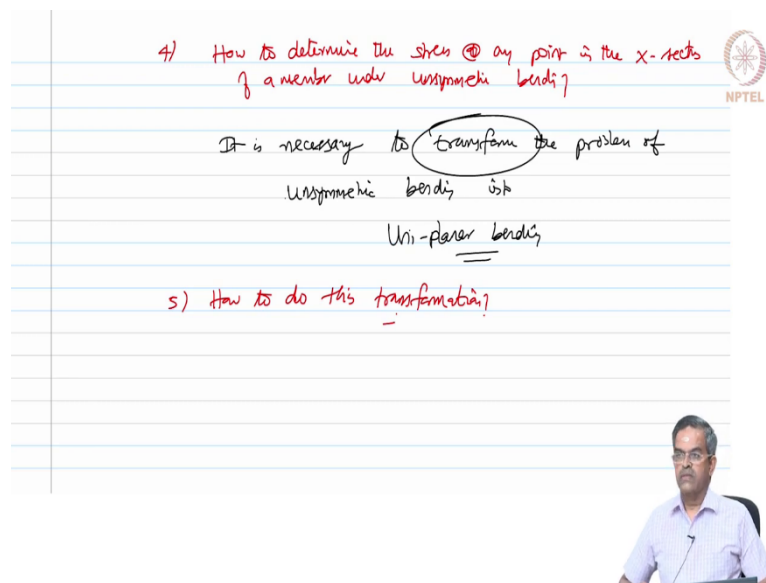 4) How to determine the stress @ any point in the x-section
of a member under unsymmetric bending?
NPTEL
It is necessary to transform the problem of
unsymmetric bending into
Uni-planar bending
5) How to do this transformation?